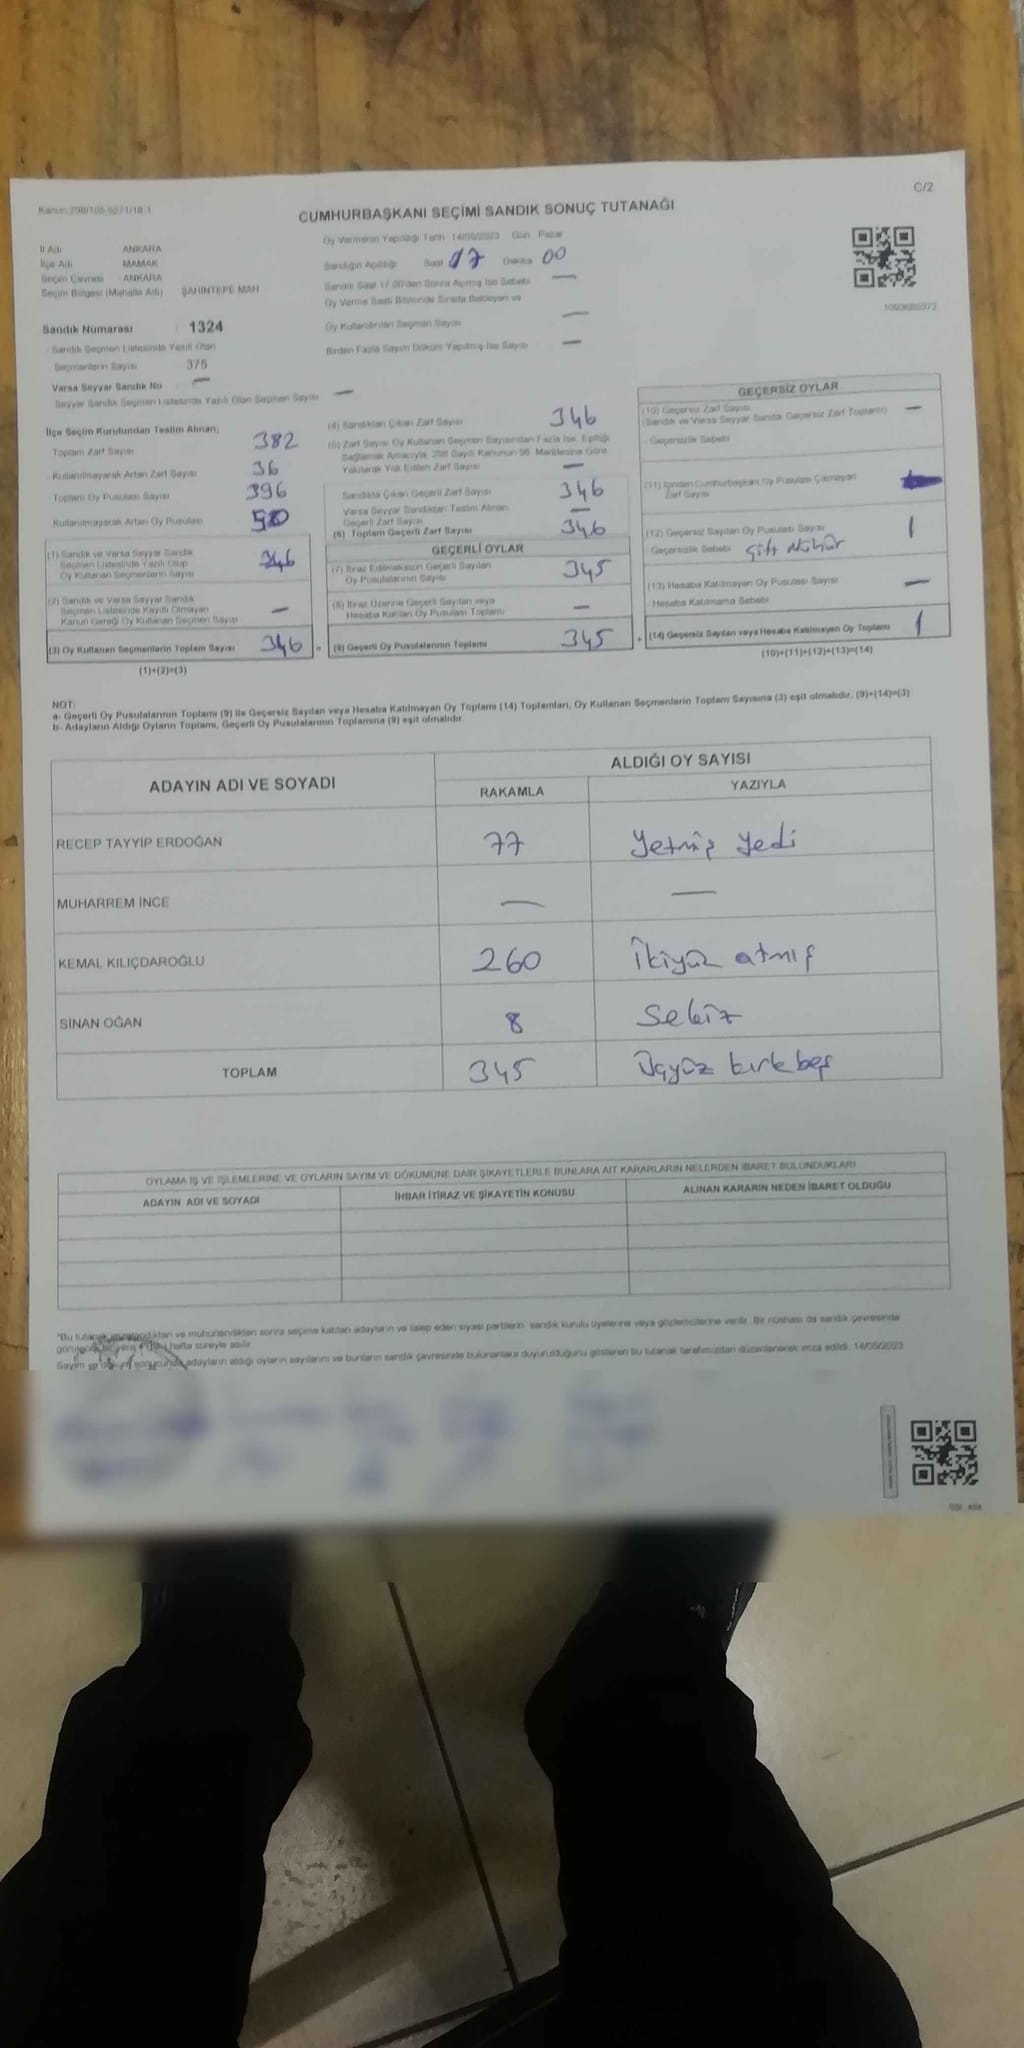 C/2
CUMHURBAŞKANI SEÇİMİ SANDIK SONUÇ TUTANAĞI
İl Adı ANKARA
İlçe Adı MAMAK
Seçim Çevresi ANKARA
Seçim Bölgesi (Mahalle Adı) ŞAHİNTEPE MAH
Oy Vermenin Yapıldığı Tarih 14/05/2023 Gün Pazar
Sandığın Açıldığı Saat 17 Dakika 00
Sandık Saat 17:00'den Sonra Açılmış İse Sebebi —
Oy Verme Saati Bitiminde Sırada Bekleyen ve
Oy Kullandırılan Seçmen Sayısı —
Birden Fazla Sayım Döküm Yapılmış İse Sayısı —
Sandık Numarası : 1324
Sandık Seçmen Listesinde Yazılı Olan
Seçmenlerin Sayısı : 375
Varsa Seyyar Sandık No —
Seyyar Sandık Seçmen Listesinde Yazılı Olan Seçmen Sayısı —
İlçe Seçim Kurulundan Teslim Alınan;
Toplam Zarf Sayısı 382
Kullanılmayarak Artan Zarf Sayısı 36
Toplam Oy Pusulası Sayısı 396
Kullanılmayarak Artan Oy Pusulası
(1) Sandık ve Varsa Seyyar Sandık
Seçmen Listesinde Yazılı Olup
Oy Kullanan Seçmenlerin Sayısı 346
(2) Sandık ve Varsa Seyyar Sandık
Seçmen Listesinde Kayıtlı Olmayan
Kanun Gereği Oy Kullanan Seçmen Sayısı —
(3) Oy Kullanan Seçmenlerin Toplam Sayısı 346
(1)+(2)=(3)
(4) Sandıktan Çıkan Zarf Sayısı 346
(5) Zarf Sayısı Oy Kullanan Seçmen Sayısından Fazla İse, Eşitliği
Sağlamak Amacıyla, 298 Sayılı Kanunun 98. Maddesine Göre
Yakılarak Yok Edilen Zarf Sayısı —
Sandıkta Çıkan Geçerli Zarf Sayısı 346
Varsa Seyyar Sandıktan Teslim Alınan
Geçerli Zarf Sayısı —
(6) Toplam Geçerli Zarf Sayısı 346
GEÇERLİ OYLAR
(7) İtiraz Edilmeksizin Geçerli Sayılan
Oy Pusulalarının Sayısı 345
(8) İtiraz Üzerine Geçerli Sayılan veya
Hesaba Katılan Oy Pusulası Toplamı —
(9) Geçerli Oy Pusulalarının Toplamı 345
GEÇERSİZ OYLAR
(10) Geçersiz Zarf Sayısı —
(Sandık ve Varsa Seyyar Sandık Geçersiz Zarf Toplamı)
Geçersizlik Sebebi
(11) İçinden Cumhurbaşkanı Oy Pusulası Çıkmayan
Zarf Sayısı
(12) Geçersiz Sayılan Oy Pusulası Sayısı 1
Geçersizlik Sebebi Çift Mühür
(13) Hesaba Katılmayan Oy Pusulası Sayısı —
Hesaba Katılmama Sebebi
(14) Geçersiz Sayılan veya Hesaba Katılmayan Oy Toplamı 1
(10)+(11)+(12)+(13)=(14)
NOT:
a- Geçerli Oy Pusulalarının Toplamı (9) ile Geçersiz Sayılan veya Hesaba Katılmayan Oy Toplamı (14) Toplamları, Oy Kullanan Seçmenlerin Toplam Sayısına (3) eşit olmalıdır. (9)+(14)=(3)
b- Adayların Aldığı Oyların Toplamı, Geçerli Oy Pusulalarının Toplamına (9) eşit olmalıdır.
ADAYIN ADI VE SOYADI ALDIĞI OY SAYISI
RAKAMLA YAZIYLA
RECEP TAYYİP ERDOĞAN 77 Yetmiş Yedi
MUHARREM İNCE — —
KEMAL KILIÇDAROĞLU 260 İkiyüz atmış
SİNAN OĞAN 8 Sekiz
TOPLAM 345 Üçyüz kırk beş
OYLAMA İŞ VE İŞLEMLERİNE VE OYLARIN SAYIM VE DÖKÜMÜNE DAİR ŞİKAYETLERLE BUNLARA AİT KARARLARIN NELERDEN İBARET BULUNDUKLARI
ADAYIN ADI VE SOYADI İHBAR İTİRAZ VE ŞİKAYETİN KONUSU ALINAN KARARIN NEDEN İBARET OLDUĞU
*Bu tutanak imzalandıktan ve mühürlendikten sonra seçime katılan adayların ve talep eden siyasi partilerin sandık kurulu üyelerine veya gözlemcilerine verilir. Bir nüshası da sandık çevresinde
hafta süreyle asılır.
Sayım ve döküm sonucunda adayların aldığı oyların sayılarını ve bunların sandık çevresinde bulunanlara duyurulduğunu gösteren bu tutanak tarafımızdan düzenlenerek imza edildi. 14/05/2023